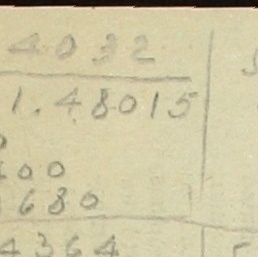 4032
1.48015
00
680
4364